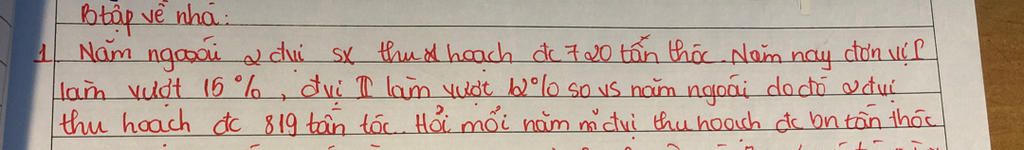 Btập về nhà:
1. Năm ngoái 2 đvi sx thu hoạch đc 720 tấn thóc. Năm nay đơn vị I
làm vượt 15%, đvị II làm vượt 12% so vs năm ngoái do đó 2 đvị
thu hoạch đc 819 tấn tóc. Hỏi mỗi năm mỗi đvị thu hoạch đc bn tấn thóc